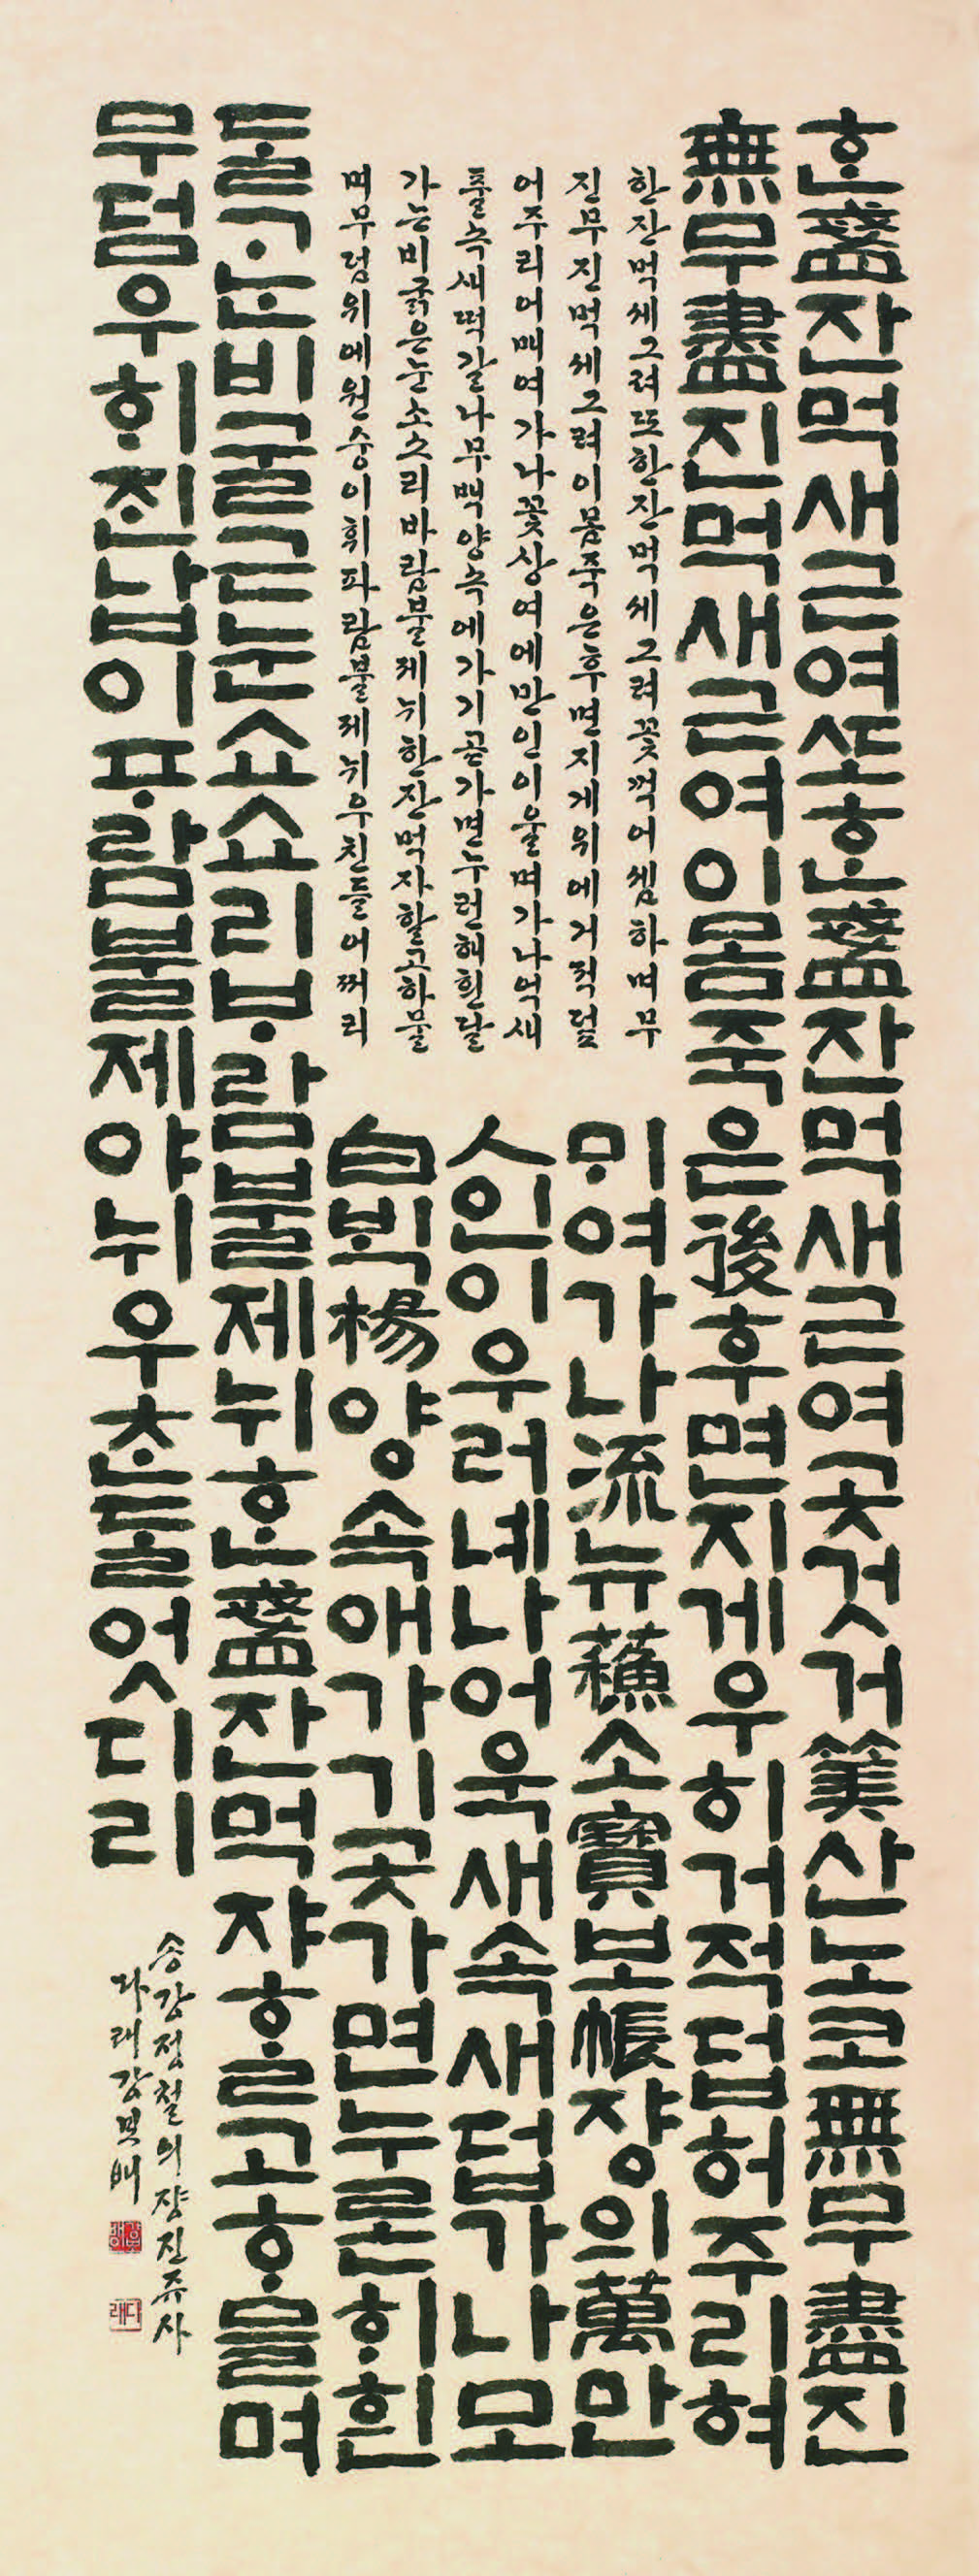 ᄒᆞᆫ盞잔먹새근여ᄯᅩᄒᆞᆫ盞잔먹새근여곳것거筭산노코無무盡진
無무盡진먹새근여이몸죽은後후면지게우히거적덥허주리혀
ᄆᆡ여가나流뉴蘓소寶보帳쟝의萬만
人인이우러녜나어욱새속새덥가나모
白ᄇᆡᆨ楊양속애가기곳가면누론ᄒᆡ흰
ᄃᆞᆯᄀᆞᄂᆞᆫ비굴근눈쇼쇼리ᄇᆞ람불제뉘ᄒᆞᆫ盞잔먹쟈ᄒᆞᆯ고ᄒᆞ믈며
무덤우ᄒᆡᄌᆡᆫ납이ᄑᆞ람불제야뉘우ᄎᆞᆫᄃᆞᆯ엇디리
한잔먹세그려또한잔먹세그려꽃꺽어쎔하며무
진무진먹세그려이몸죽은후면지게위에거적덮
어주리어매여가나꽃상여에만인이울며가나억새
풀속새떡갈나무백양속에가기곧가면누런해흰달
가는비굵은눈소소리바람불제뉘한잔먹자할고하물
며무덤위에원숭이휘파람불제뉘우친들어쩌리
송강정철의쟝진쥬사
다래강